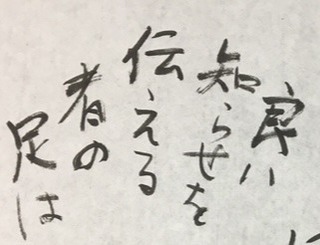 良い
知らせを
伝える
者の
足は